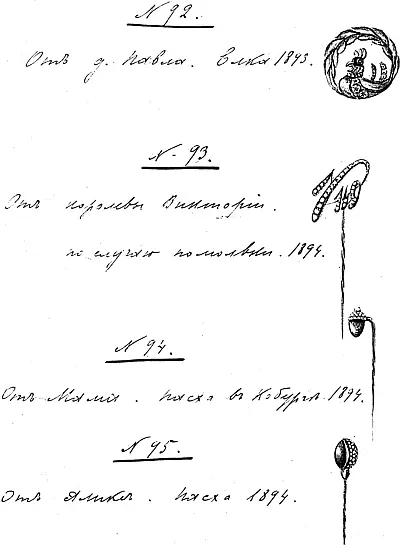 N 92.
Отъ д. Павла. Елка 1893.
N 93.
Отъ королевы Викторіи.
по случаю помолвки. 1894.
N 94.
Отъ Мамá. Пасха въ Кобургѣ 1894.
N 95.
Отъ Аликсъ. Пасха 1894.